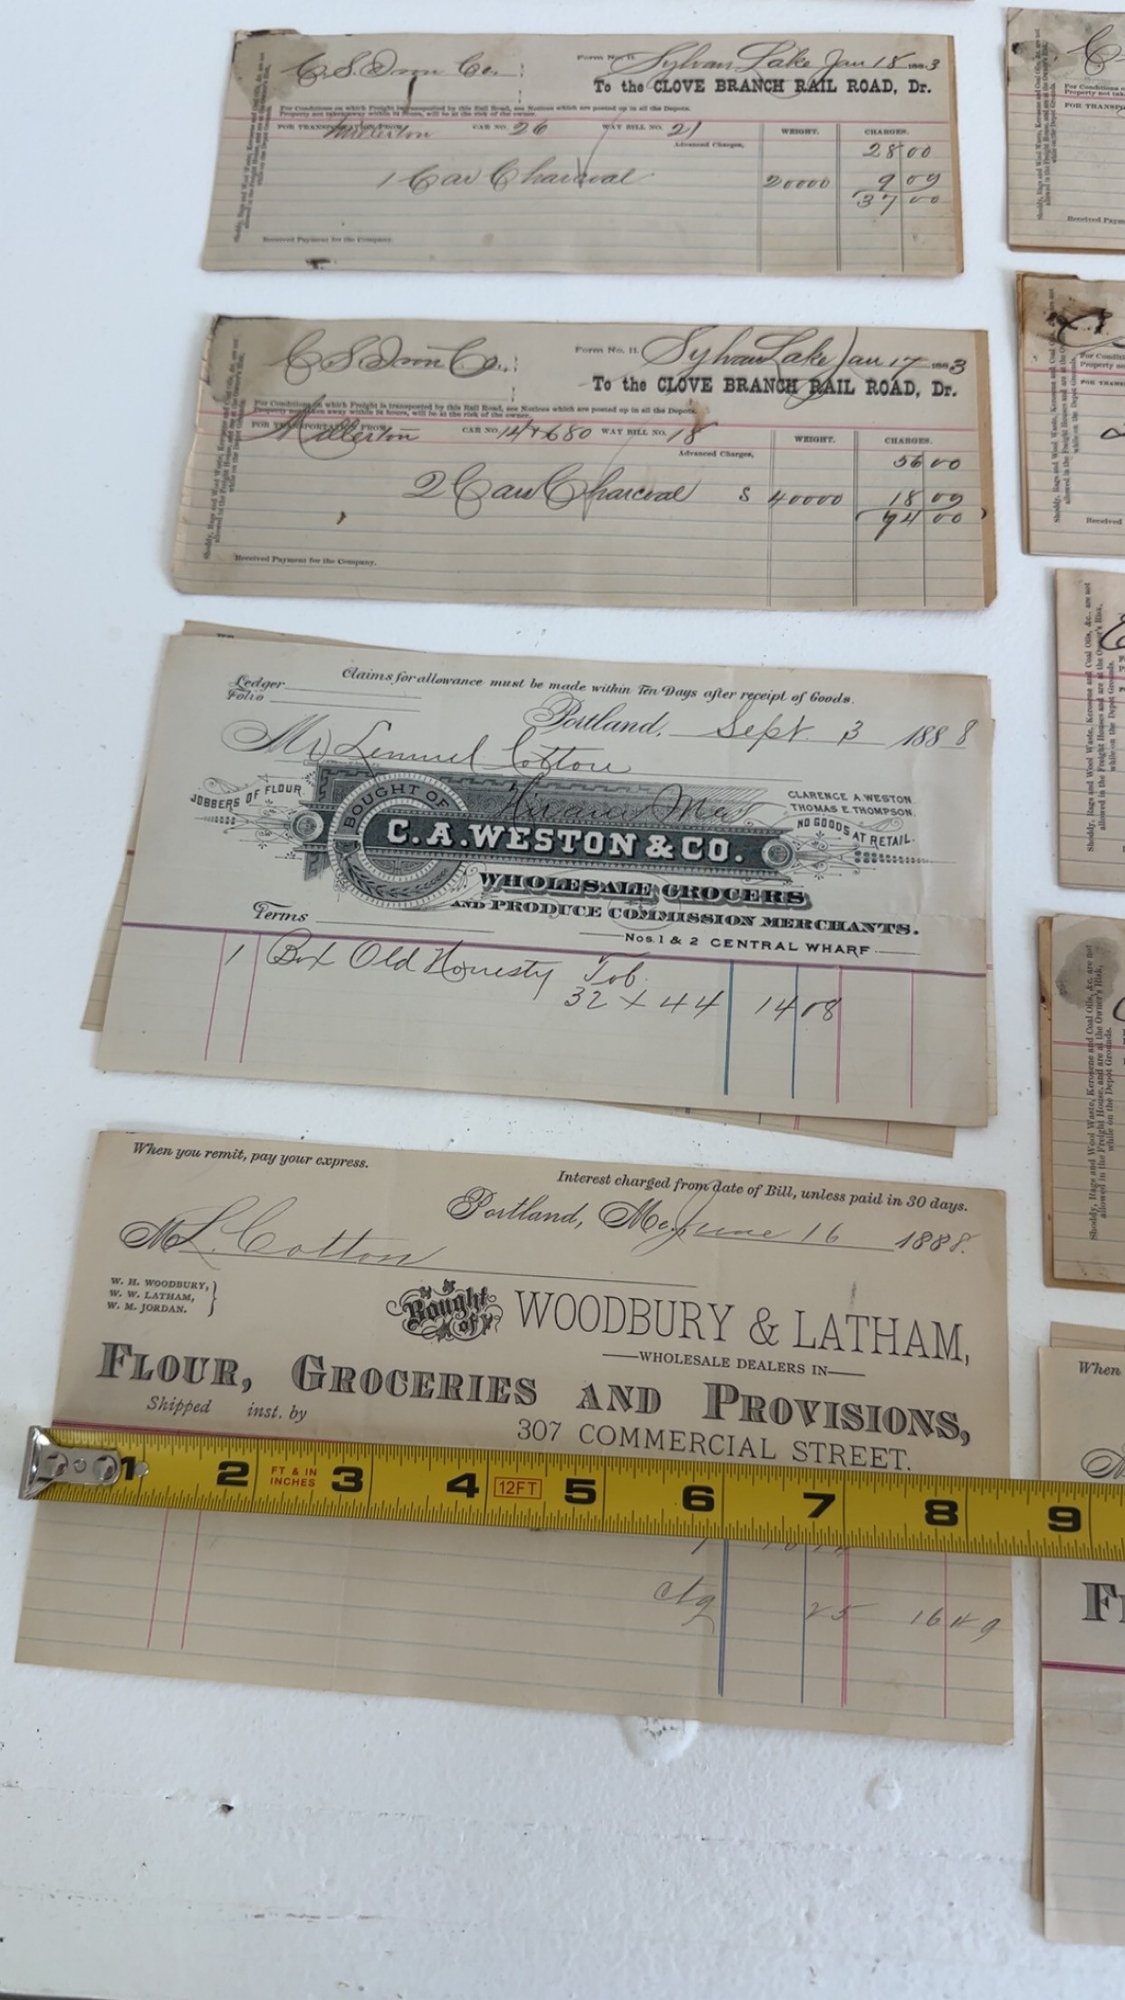 C. S. Iron Co.
Form No. 11.
Sylvan Lake Jan 18 1883
To the CLOVE BRANCH RAIL ROAD, Dr.
For Conditions on which Freight is transported by this Rail Road, see Notices which are posted up in all the Depots.
Property not taken away within 24 hours, will be at the risk of the owner.
FOR TRANSPORTATION FROM Millerton CAR NO. 26 WAY BILL NO. 21 WEIGHT. CHARGES.
Advanced Charges, 28 00
1 Car Charcoal 20000 9 00
37 00
Received Payment for the Company.
Shoddy, Rags and Wool Waste, Kerosene and Coal Oils, &c. are not
allowed in the Freight House, and are at the Owner's Risk,
while on the Depot Grounds.
C S Iron Co.
Form No. 11.
Sylvan Lake Jan 17 1883
To the CLOVE BRANCH RAIL ROAD, Dr.
For Conditions on which Freight is transported by this Rail Road, see Notices which are posted up in all the Depots.
Property not taken away within 24 hours, will be at the risk of the owner.
FOR TRANSPORTATION FROM Millerton CAR NO. 14 & 680 WAY BILL NO. 18 WEIGHT. CHARGES.
Advanced Charges, 56 00
2 Cars Charcoal 40000 18 00
74 00
Received Payment for the Company.
Shoddy, Rags and Wool Waste, Kerosene and Coal Oils, &c. are not
allowed in the Freight House, and are at the Owner's Risk,
while on the Depot Grounds.
Claims for allowance must be made within Ten Days after receipt of Goods.
Ledger
Folio
Portland, Sept. 3 1888
Mr Lemuel Cotton
JOBBERS OF FLOUR
BOUGHT OF
C. A. WESTON & CO.
CLARENCE A. WESTON
THOMAS E. THOMPSON.
NO GOODS AT RETAIL.
WHOLESALE GROCERS
AND PRODUCE COMMISSION MERCHANTS.
Terms
Nos. 1 & 2 CENTRAL WHARF
1 Box Old Honesty Tob.
32 x 44 14 08
When you remit, pay your express.
Interest charged from date of Bill, unless paid in 30 days.
Portland, Me., June 16 1888.
M L. Cotton
W. H. WOODBURY,
W. W. LATHAM,
W. M. JORDAN.
Bought of
WOODBURY & LATHAM,
WHOLESALE DEALERS IN
FLOUR, GROCERIES AND PROVISIONS,
Shipped inst. by
307 COMMERCIAL STREET.
1 2 FT & IN INCHES 3 4 12FT 5 6 7 8 9
ctg 25 16 49
Received Paym
For Conditi
Property no
FOR TRANS
Received
When
M
Fl